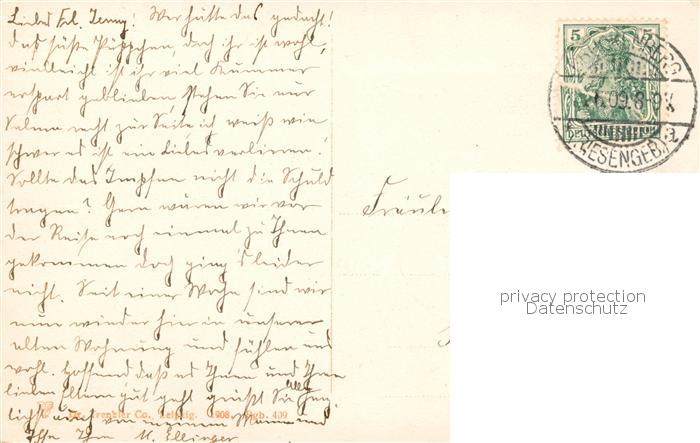 Liebes Frl. Jenny! Wer hätte das gedacht!
das süße Püppchen, doch ihr ist wohl,
vielleicht ist ihr viel Kummer
erspart geblieben. Stehen Sie nur
Selma recht zur Seite ich weiß wie
schwer es ist ein Liebes verlieren!
Sollte das Impfen nicht die Schuld
tragen? Gern wären wir vor
der Reise noch einmal zu Ihnen
gekommen doch ging's leider
nicht. Seit einer Woche sind wir
nun wieder hier in unserer
alten Wohnung und fühlen uns
wohl. Hoffend daß es Ihnen und Ihren
lieben Eltern gut geht grüßt Sie alle herz-
lichst auch von meinem Mann und
Ihre M. Ellinger
Trenkler Co., Leipzig. 1908. 409
Fräule
5 5
.09.8-9V.
a
RIESENGEB.
privacy protection
Datenschutz